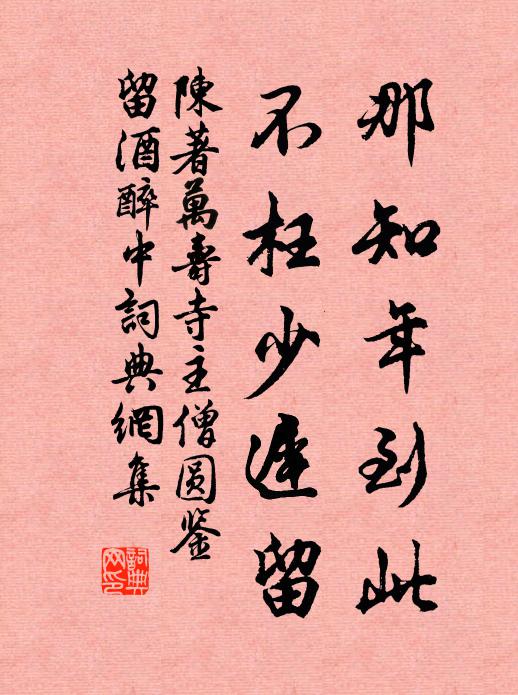 那知年到此
不枉少遲留
陳著萬壽寺主僧圆鉴
留酒醉中詞典網集
詞典网印